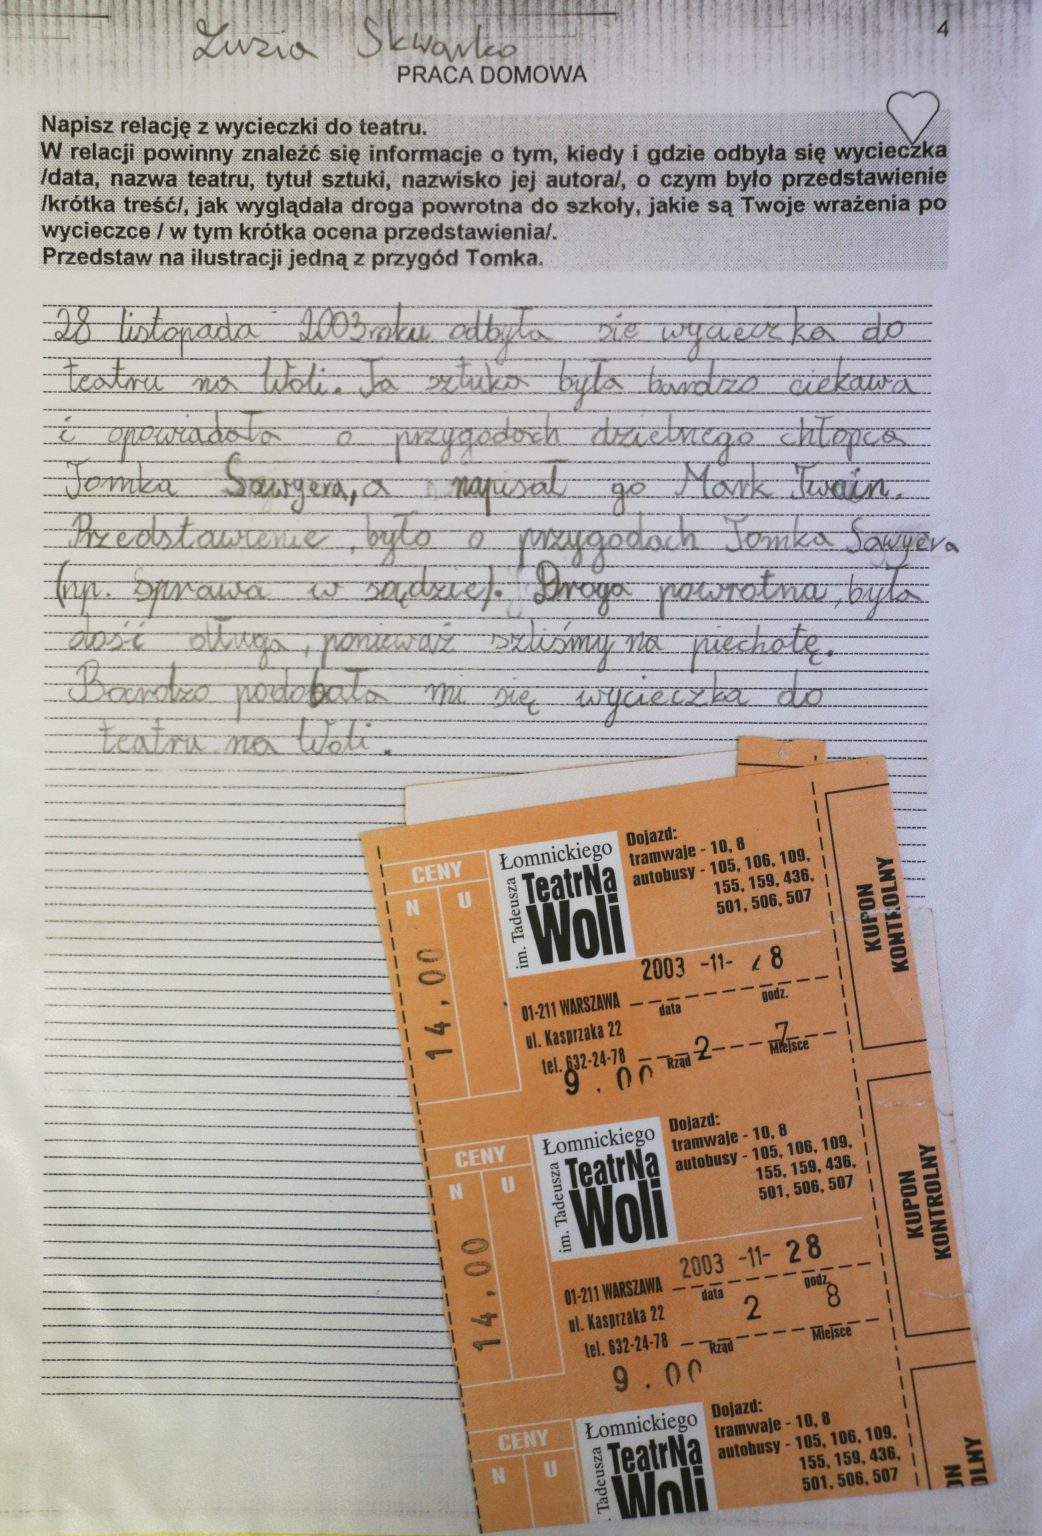 Zuzia Skwarko
4
PRACA DOMOWA
Napisz relację z wycieczki do teatru.
W relacji powinny znaleźć się informacje o tym, kiedy i gdzie odbyła się wycieczka
/data, nazwa teatru, tytuł sztuki, nazwisko jej autora/, o czym było przedstawienie
/krótka treść/, jak wyglądała droga powrotna do szkoły, jakie są Twoje wrażenia po
wycieczce / w tym krótka ocena przedstawienia/.
Przedstaw na ilustracji jedną z przygód Tomka.
28 listopada 2003 roku odbyła sie wycieczka do
teatru na Woli. Ta sztuka była bardzo ciekawa
i opowiadała o przygodach dzielnego chłopca
Tomka Sawyera, a napisał go Mark Twain.
Przedstawienie, było o przygodach Tomka Sawyera
(np. sprawa w sądzie). Droga powrotna, była
dość długa, ponieważ szliśmy na piechotę.
Bardzo podobała mi się wycieczka do
teatru na Woli.
CENY
N U
14,00
im. Tadeusza
Łomnickiego
TeatrNa
Woli
Dojazd:
tramwaje - 10, 8
autobusy - 105, 106, 109,
155, 159, 436,
501, 506, 507
2003 -11- 28
data godz.
01-211 WARSZAWA
ul. Kasprzaka 22
tel. 632-24-78
2 7
Rząd Miejsce
9.00
KUPON
KONTROLNY
CENY
N U
14,00
im. Tadeusza
Łomnickiego
TeatrNa
Woli
Dojazd:
tramwaje - 10, 8
autobusy - 105, 106, 109,
155, 159, 436,
501, 506, 507
2003 -11- 28
data godz.
01-211 WARSZAWA
ul. Kasprzaka 22
tel. 632-24-78
2 8
Rząd Miejsce
9.00
KUPON
KONTROLNY
CENY
N U
Tadeusza
Łomnickiego
TeatrNa
Woli
Dojazd:
tramwaje - 10, 8
autobusy - 105, 106, 109,
155, 159, 436,
501, 506, 507
ON
OLNY